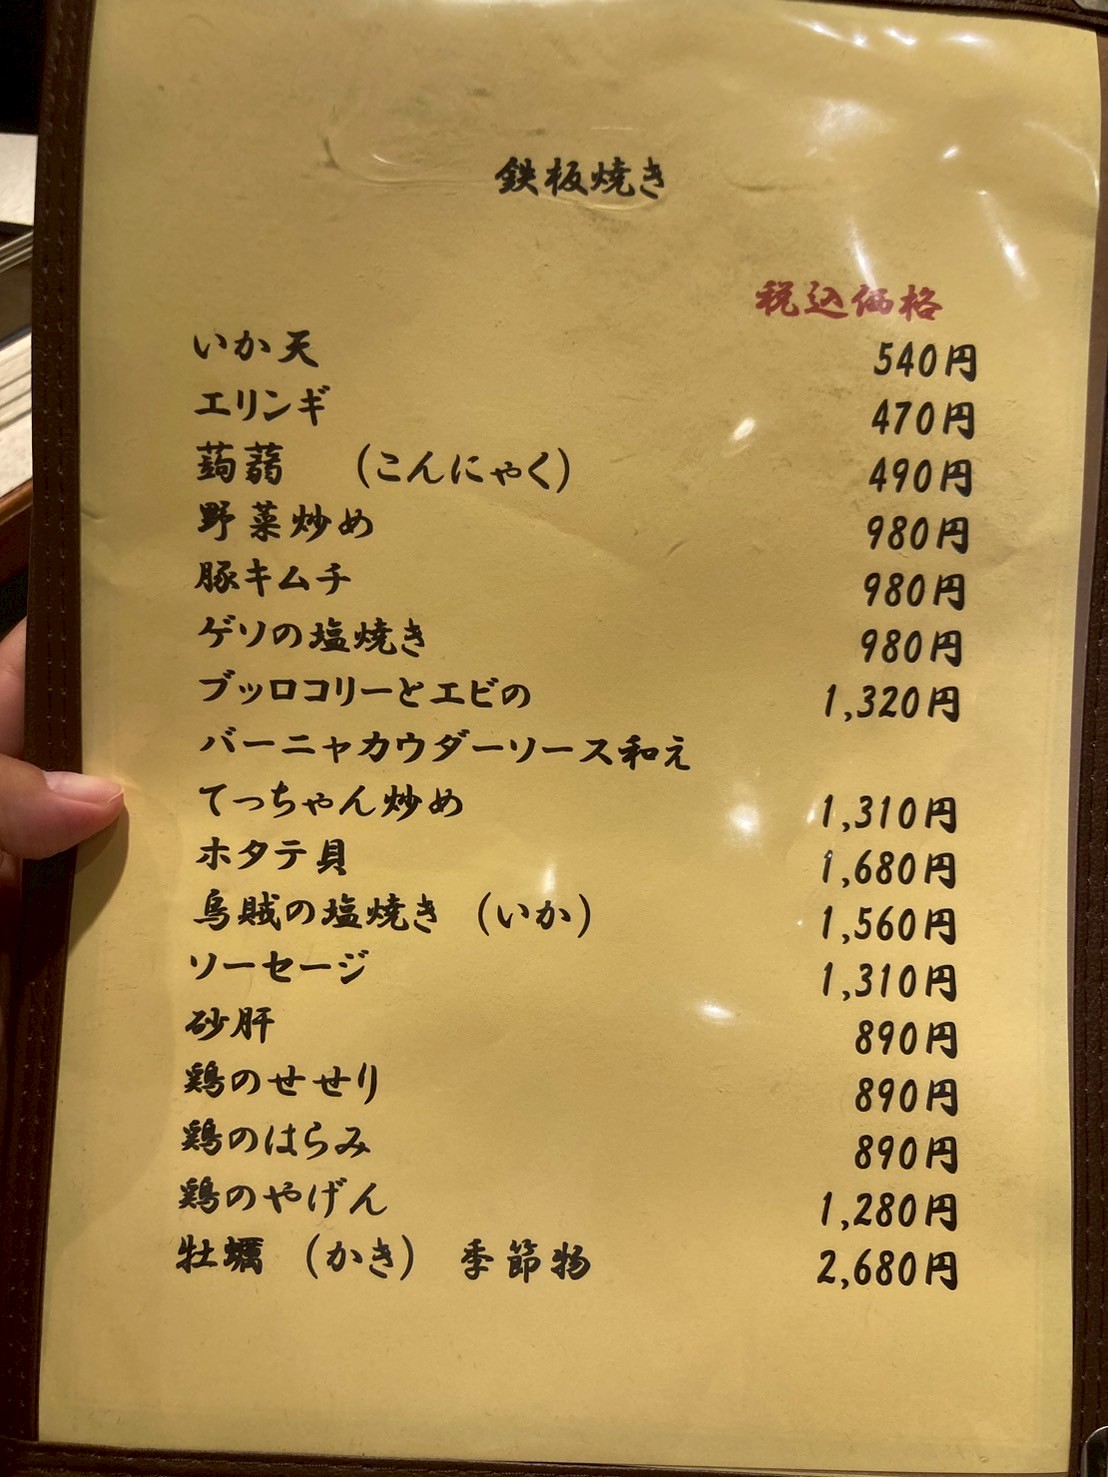 鉄板焼き
税込価格
いか天 540円
エリンギ 470円
蒟蒻 (こんにゃく) 490円
野菜炒め 980円
豚キムチ 980円
ゲソの塩焼き 980円
ブッロコリーとエビの 1,320円
バーニャカウダーソース和え
てっちゃん炒め 1,310円
ホタテ貝 1,680円
烏賊の塩焼き (いか) 1,560円
ソーセージ 1,310円
砂肝 890円
鶏のせせり 890円
鶏のはらみ 890円
鶏のやげん 1,280円
牡蠣 (かき) 季節物 2,680円